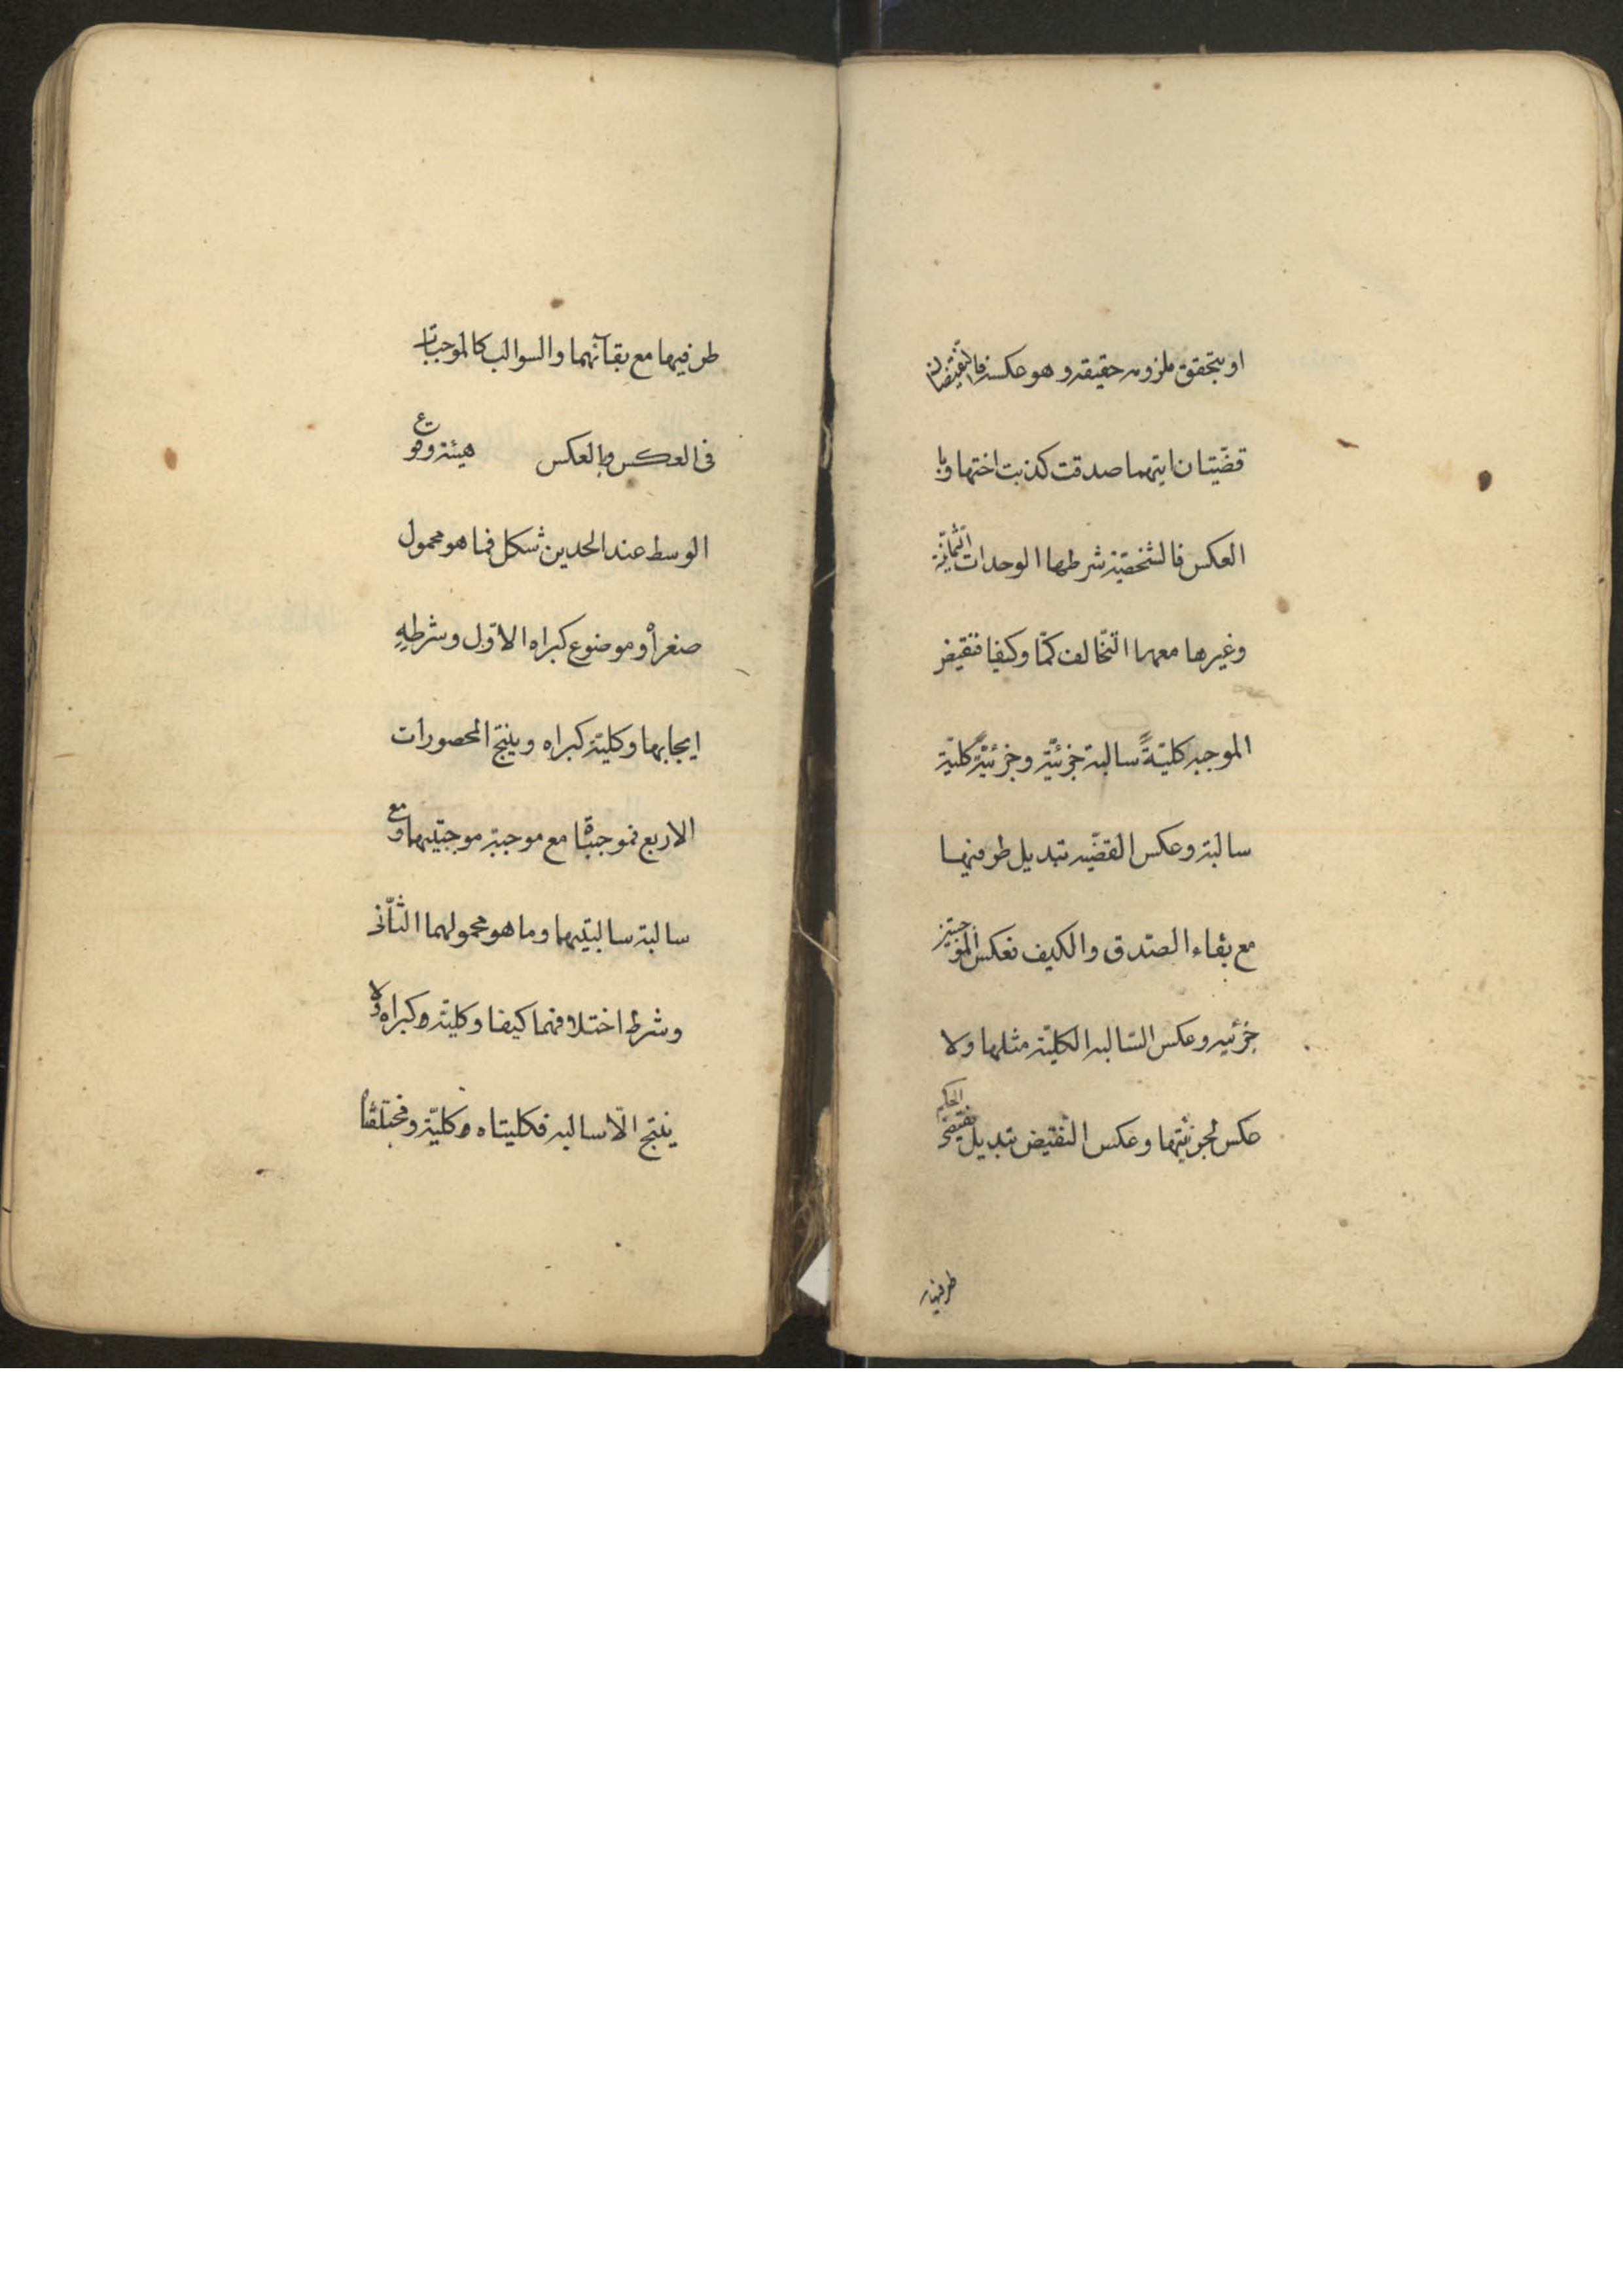 او بتحقق ملزومه حقيقه وهو عكسه فالنقيضان
قضيتان ايتهما صدقت كذبت اختها وبا
العكس فالشخصية شرطها الوحدات الثمانية
وغيرها معها التخالف كمّا وكيفا فنقيض
الموجبه كليةً سالبة جزئيّة وجزئيّةً كليّة
سالبة وعكس القضيّه تبديل طرفيها
مع بقاء الصّدق والكيف فعكس الموجبتين
جزئيه وعكس السّالبه الكليّة مثلها ولا
عكس لجزئيتها وعكس النقيض تبديل نقيضى الحكم
طرفيها
طرفيها مع بقآئهما والسوالب كالموجبات
فى العكس وبالعكس هيئة وقوع
الوسط عند الحدين شكل فما هو محمول
صغراه وموضوع كبراه الاوّل وشرطهِ
ايجابها وكليّة كبراه وينتج المحصورات
الاربع فموجبتا مع موجبة موجبتيهما ومع
سالبة سالبتيهما وما هو محمولهما الثّانى
وشرطه اختلافهما كيفا وكليّة كبراه ولا
ينتج الّا سالبه فكليتاه كليّة ومختلفتا